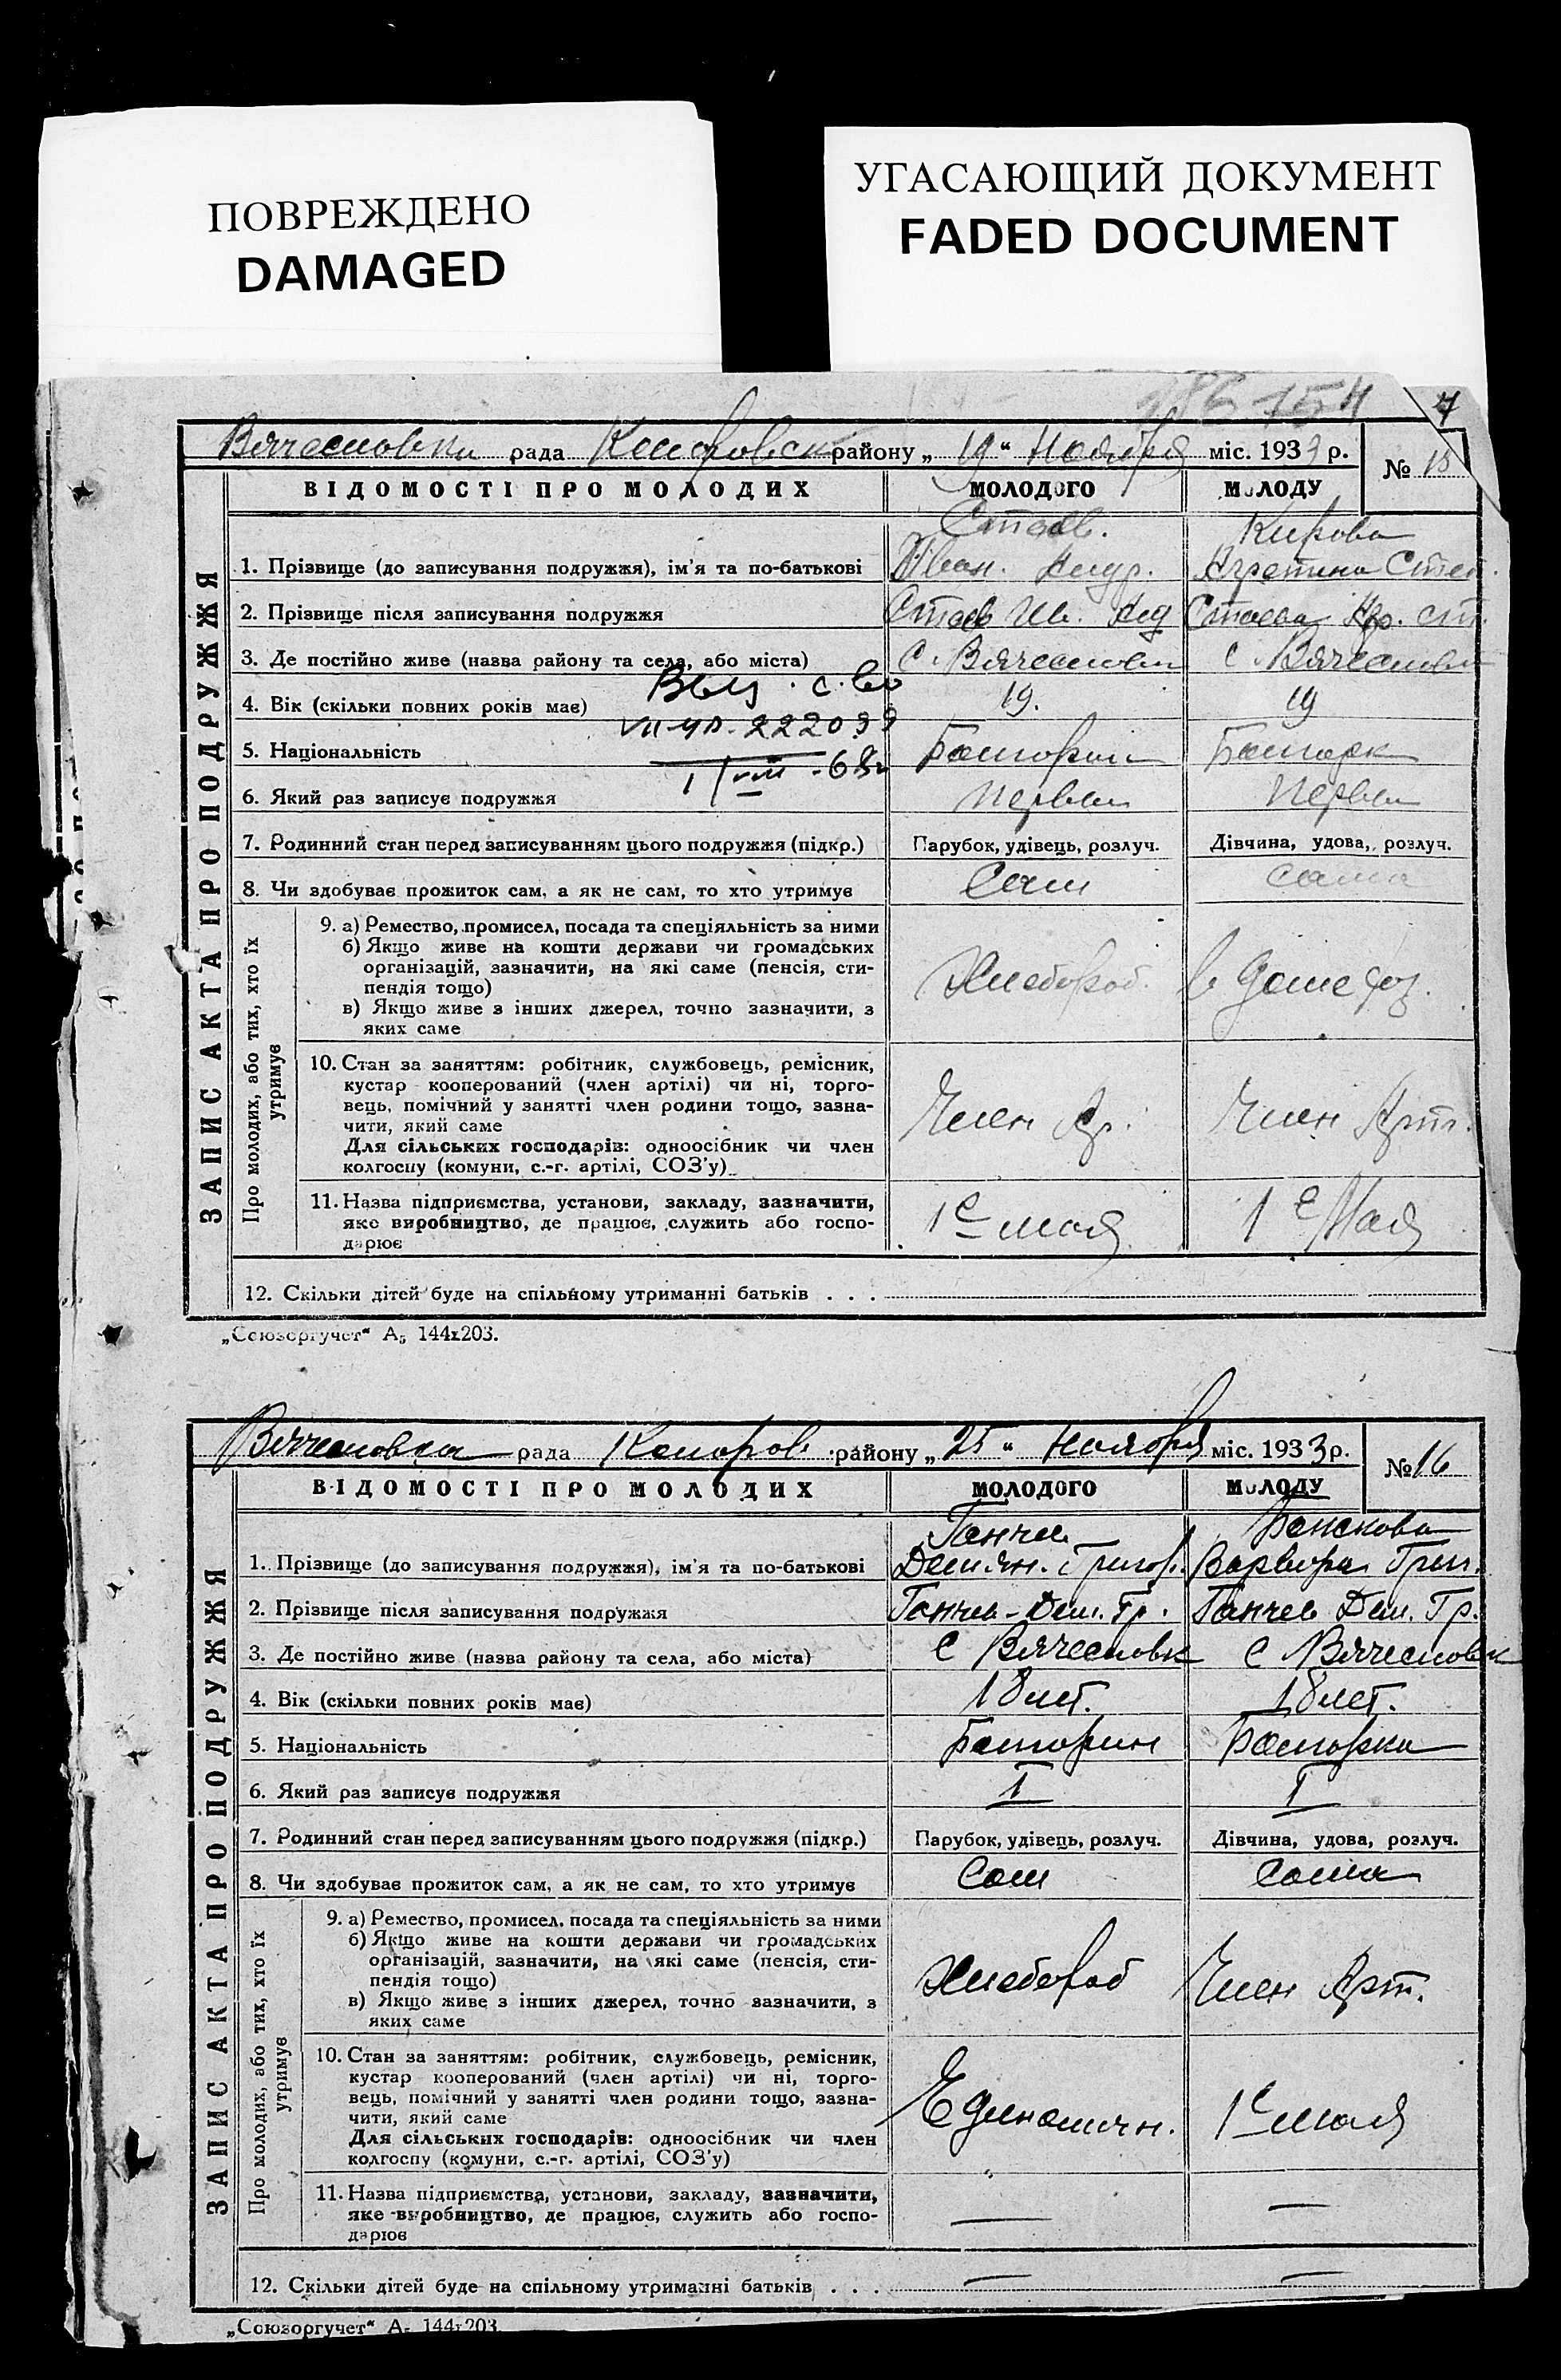 ПОВРЕЖДЕНО
DAMAGED
УГАСАЮЩИЙ ДОКУМЕНТ
FADED DOCUMENT
7
рада району „ 19 “ Ноября міс. 1933 р.
№ 15
ВІДОМОСТІ ПРО МОЛОДИХ
МОЛОДОГО
МОЛОДУ
ЗАПИС АКТА ПРО ПОДРУЖЖЯ
Стоев. Кирова
1. Прізвище (до записування подружжя), ім'я та по-батькові Иван. Степ.
2. Прізвище після записування подружжя Стоев Ив. Стоева
3. Де постійно живе (назва району та села, або міста) с. Вячесловк с. Вячесловк
4. Вік (скільки повних років має) 19. 19
5. Національність Болгарин Болгарк
6. Який раз записує подружжя Первый Первый
7. Родинний стан перед записуванням цього подружжя (підкр.) Парубок, удівець, розлуч. Дівчина, удова, розлуч.
8. Чи здобуває прожиток сам, а як не сам, то хто утримує Сам сама
Про молодих, або тих, хто їх утримує
9. а) Ремество, промисел, посада та спеціяльність за ними
б) Якщо живе на кошти держави чи громадських
організацій, зазначити, на які саме (пенсія, сти-
пендія тощо)
в) Якщо живе з інших джерел, точно зазначити, з
яких саме
Хлебороб.
10. Стан за заняттям: робітник, службовець, ремісник,
кустар кооперований (член артілі) чи ні, торго-
вець, помічний у занятті член родини тощо, зазна-
чити, який саме
Для сільських господарів: одноосібник чи член
колгоспу (комуни, с.-г. артілі, СОЗ'у)
Член Ар. Член Арт.
11. Назва підприємства, установи, закладу, зазначити,
яке виробництво, де працює, служить або госпо-
дарює
1е мая 1е Мая
12. Скільки дітей буде на спільному утриманні батьків . . .
„Союзоргучет“ А5 144х203.
Вячесловка рада району „ 25 “ Ноября міс. 1933 р.
№ 16
ВІДОМОСТІ ПРО МОЛОДИХ
МОЛОДОГО
МОЛОДУ
ЗАПИС АКТА ПРО ПОДРУЖЖЯ
Ганчев
1. Прізвище (до записування подружжя), ім'я та по-батькові Демян. Григор. Варвара Григ.
2. Прізвище після записування подружжя Ганчев - Дем. Гр. Ганчев Дем. Гр.
3. Де постійно живе (назва району та села, або міста) с Вячесловк с Вячесловк
4. Вік (скільки повних років має) 18 лет. 18 лет.
5. Національність Болгарин Болгарка
6. Який раз записує подружжя I I
7. Родинний стан перед записуванням цього подружжя (підкр.) Парубок, удівець, розлуч. Дівчина, удова, розлуч.
8. Чи здобуває прожиток сам, а як не сам, то хто утримує Сам Сама
Про молодих, або тих, хто їх утримує
9. а) Ремество, промисел, посада та спеціяльність за ними
б) Якщо живе на кошти держави чи громадських
організацій, зазначити, на які саме (пенсія, сти-
пендія тощо)
в) Якщо живе з інших джерел, точно зазначити, з
яких саме
Хлебороб Член Арт.
10. Стан за заняттям: робітник, службовець, ремісник,
кустар кооперований (член артілі) чи ні, торго-
вець, помічний у занятті член родини тощо, зазна-
чити, який саме
Для сільських господарів: одноосібник чи член
колгоспу (комуни, с.-г. артілі, СОЗ'у)
Единоличн. 1е мая
11. Назва підприємства, установи, закладу, зазначити,
яке виробництво, де працює, служить або госпо-
дарює
— —
12. Скільки дітей буде на спільному утриманні батьків . . . — —
„Союзоргучет“ А5 144х203